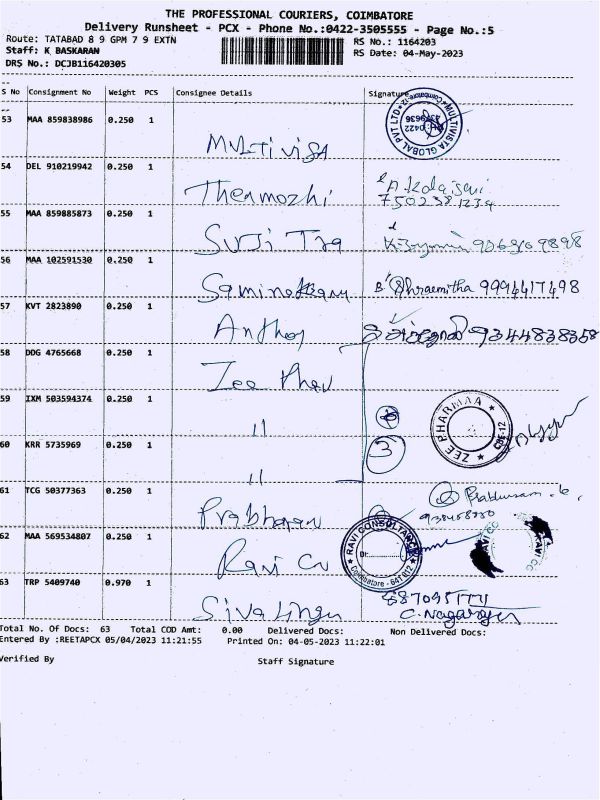 THE PROFESSIONAL COURIERS, COIMBATORE
Delivery Runsheet - PCX - Phone No.:0422-3505555 - Page No.:5
Route: TATABAD 8 9 GPM 7 9 EXTN
RS No.: 1164203
Staff: K BASKARAN
RS Date: 04-May-2023
DRS No.: DCJB116420305
S No Consignment No Weight PCS Consignee Details Signature
53 MAA 859838986 0.250 1
MULTIVISTA GLOBAL PVT LTD
Coimbatore-12
0422
4379636
Multi visa
54 DEL 910219942 0.250 1
Thenmozhi
7502381234
55 MAA 859885873 0.250 1
Suji Tra
56 MAA 102591530 0.250 1
9994417498
57 KVT 2823890 0.250 1
Anthoy
9344838358
58 DDG 4765668 0.250 1
Zee Phar
59 IXM 503594374 0.250 1
"
ZEE PHARMAA
CBE-12
60 KRR 5735969 0.250 1
"
3
61 TCG 50377363 0.250 1
Prabharan
62 MAA 569534807 0.250 1
Ravi Cu
RAVI CONSULTANCY
Coimbatore - 641 012
63 TRP 5409740 0.970 1
Sivalingu
C. Nagarajen
Total No. Of Docs: 63 Total COD Amt: 0.00 Delivered Docs: Non Delivered Docs:
Entered By :REETAPCX 05/04/2023 11:21:55 Printed On: 04-05-2023 11:22:01
Verified By Staff Signature